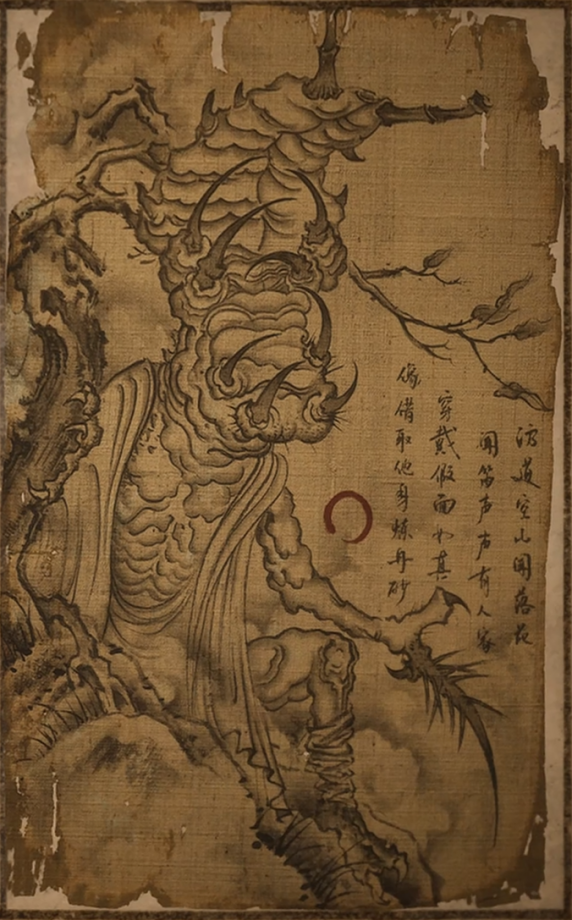 访道空山闲落花
闻笛声声有人家
穿戴假面
借取他身炼丹砂